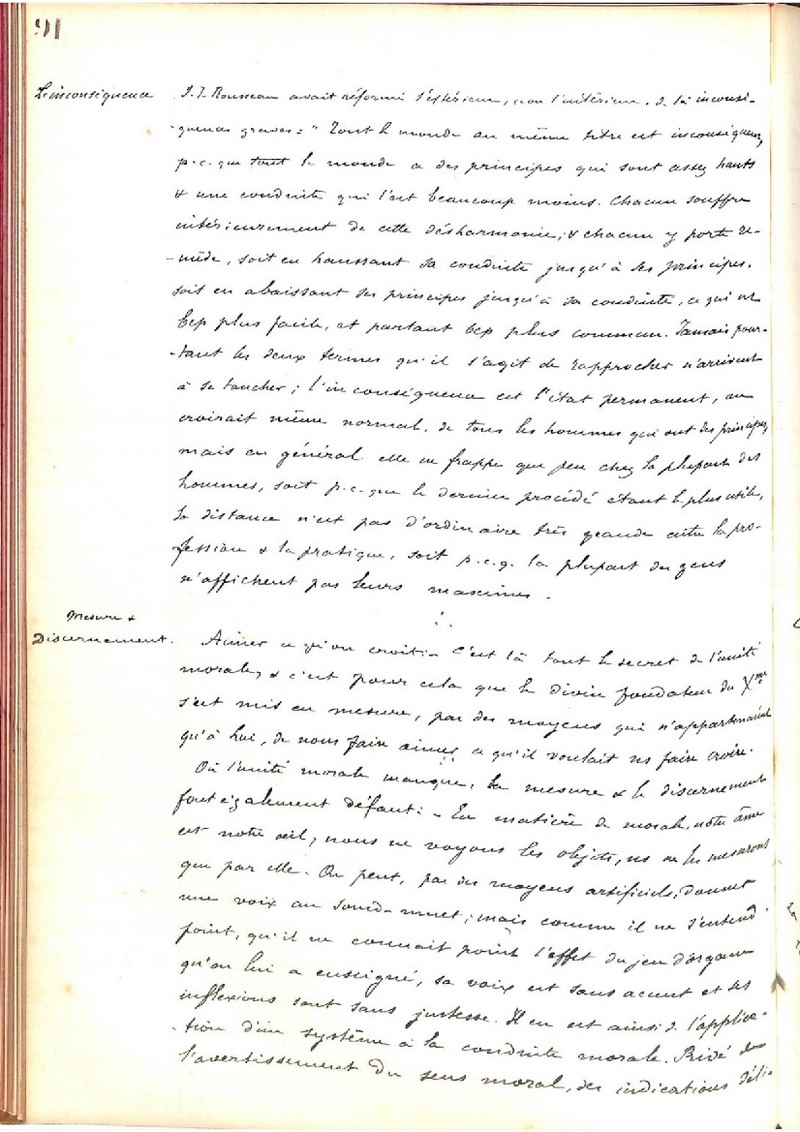 91
L'inconséquence
J. J. Rousseau avait réformé l'extérieur, non l'intérieur. De là inconsé-
-quences graves : " Tout le monde au même titre est inconséquent,
p.c.que tout le monde a des principes qui sont assez hauts
& une conduite qui l'est beaucoup moins. Chacun souffre
intérieurement de cette désharmonie, & chacun y porte re-
-mède, soit en haussant sa conduite jusqu'à ses principes.
soit en abaissant ses principes jusqu'à sa conduite, ce qui est
bcp plus facile, et partant bcp plus commun. Jamais pour-
-tant les deux termes qu'il s'agit de rapprocher n'arrivent
à se toucher ; l'inconséquence est l'état permanent, on
croirait même normal, de tous les hommes qui ont des principes,
mais en général elle ne frappe que peu chez la plupart des
hommes, soit p.c.que le dernier procédé étant le plus usité,
la distance n'est pas d'ordinaire très grande entre la pro-
fession & la pratique, soit p.c.q. la plupart des gens
n'affichent pas leurs maximes.
Mesure &
Discernement.
Aimer ce qu'on croit :- C'est là tout le secret de l'unité
morale, & c'est pour cela que le divin fondateur du Xme
s'est mis en mesure, par des moyens qui n'appartenaient
qu'à Lui, de nous faire aimer ce qu'il voulait ns faire croire.
Où l'unité morale manque, la mesure & le discernement
font également défaut :- En matière de morale, notre âme
est notre œil ; nous ne voyons les objets, ns ne les mesurons
que par elle. On peut, par des moyens artificiels, donner
une voix au sourd-muet ; mais comme il ne s'entend
point, qu'il ne connait point l'effet du jeu d'organe
qu'on lui a enseigné, sa voix est sans accent et ses
inflexions sont sans justesse. Il en est ainsi de l'applica-
-tion d'un système à la conduite morale. Privé de
l'avertissement du sens moral, des indications déli-